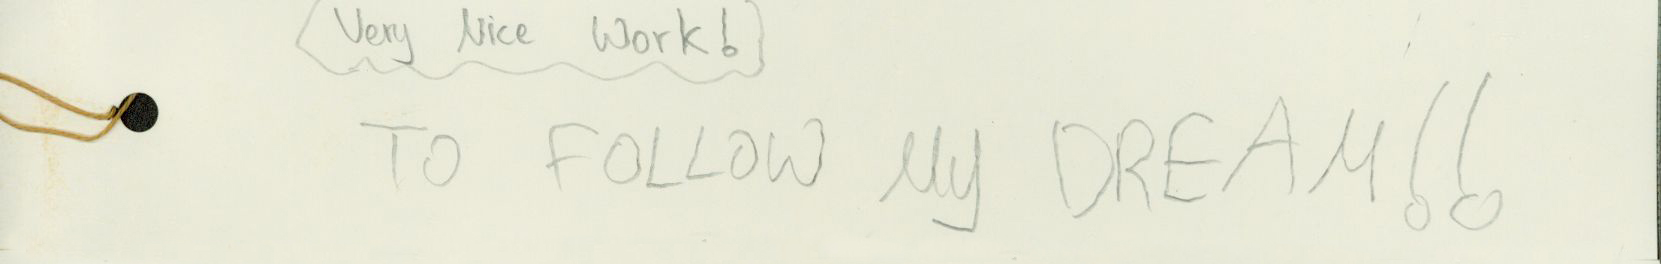 Very Nice Work!
TO FOLLOW My DREAM!!